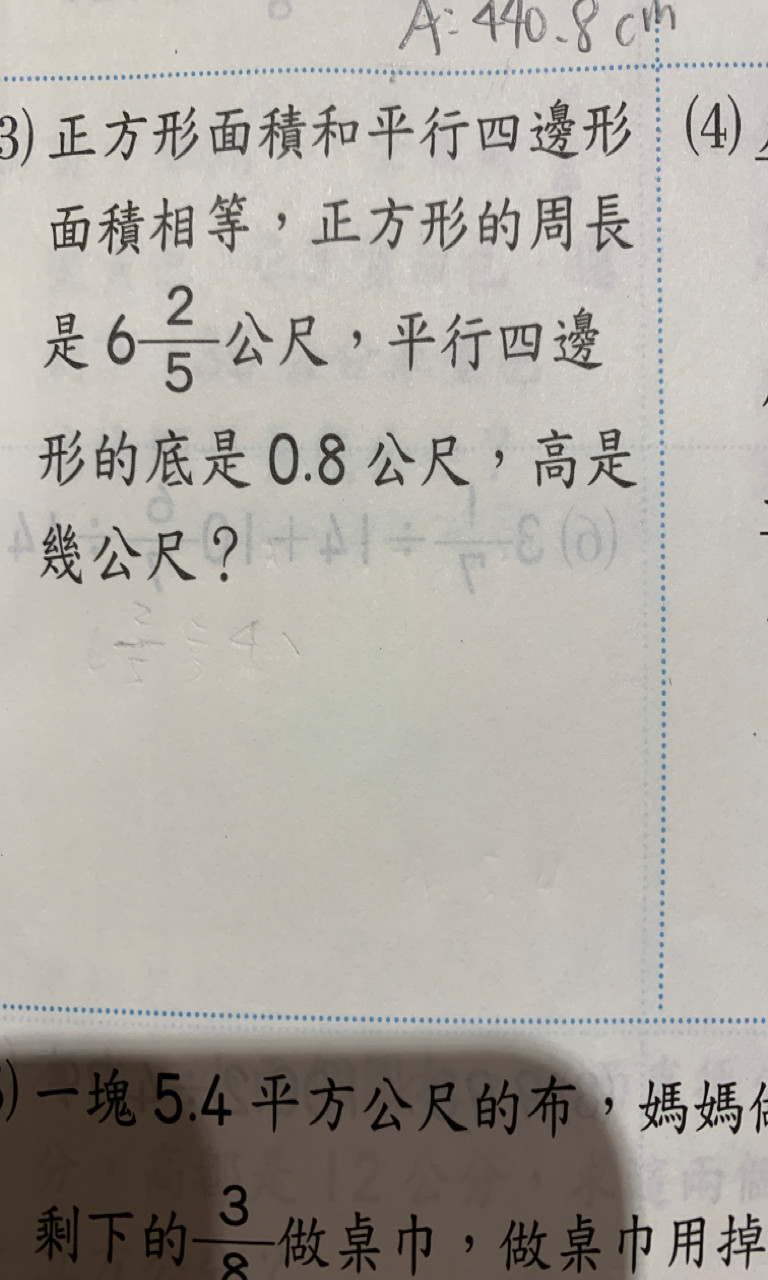 A: 440.8 cm
3) 正方形面積和平行四邊形 (4)
面積相等，正方形的周長
是 6 2/5 公尺，平行四邊
形的底是 0.8 公尺，高是
幾公尺？
) 一塊 5.4 平方公尺的布，媽媽
剩下的 3/8 做桌巾，做桌巾用掉